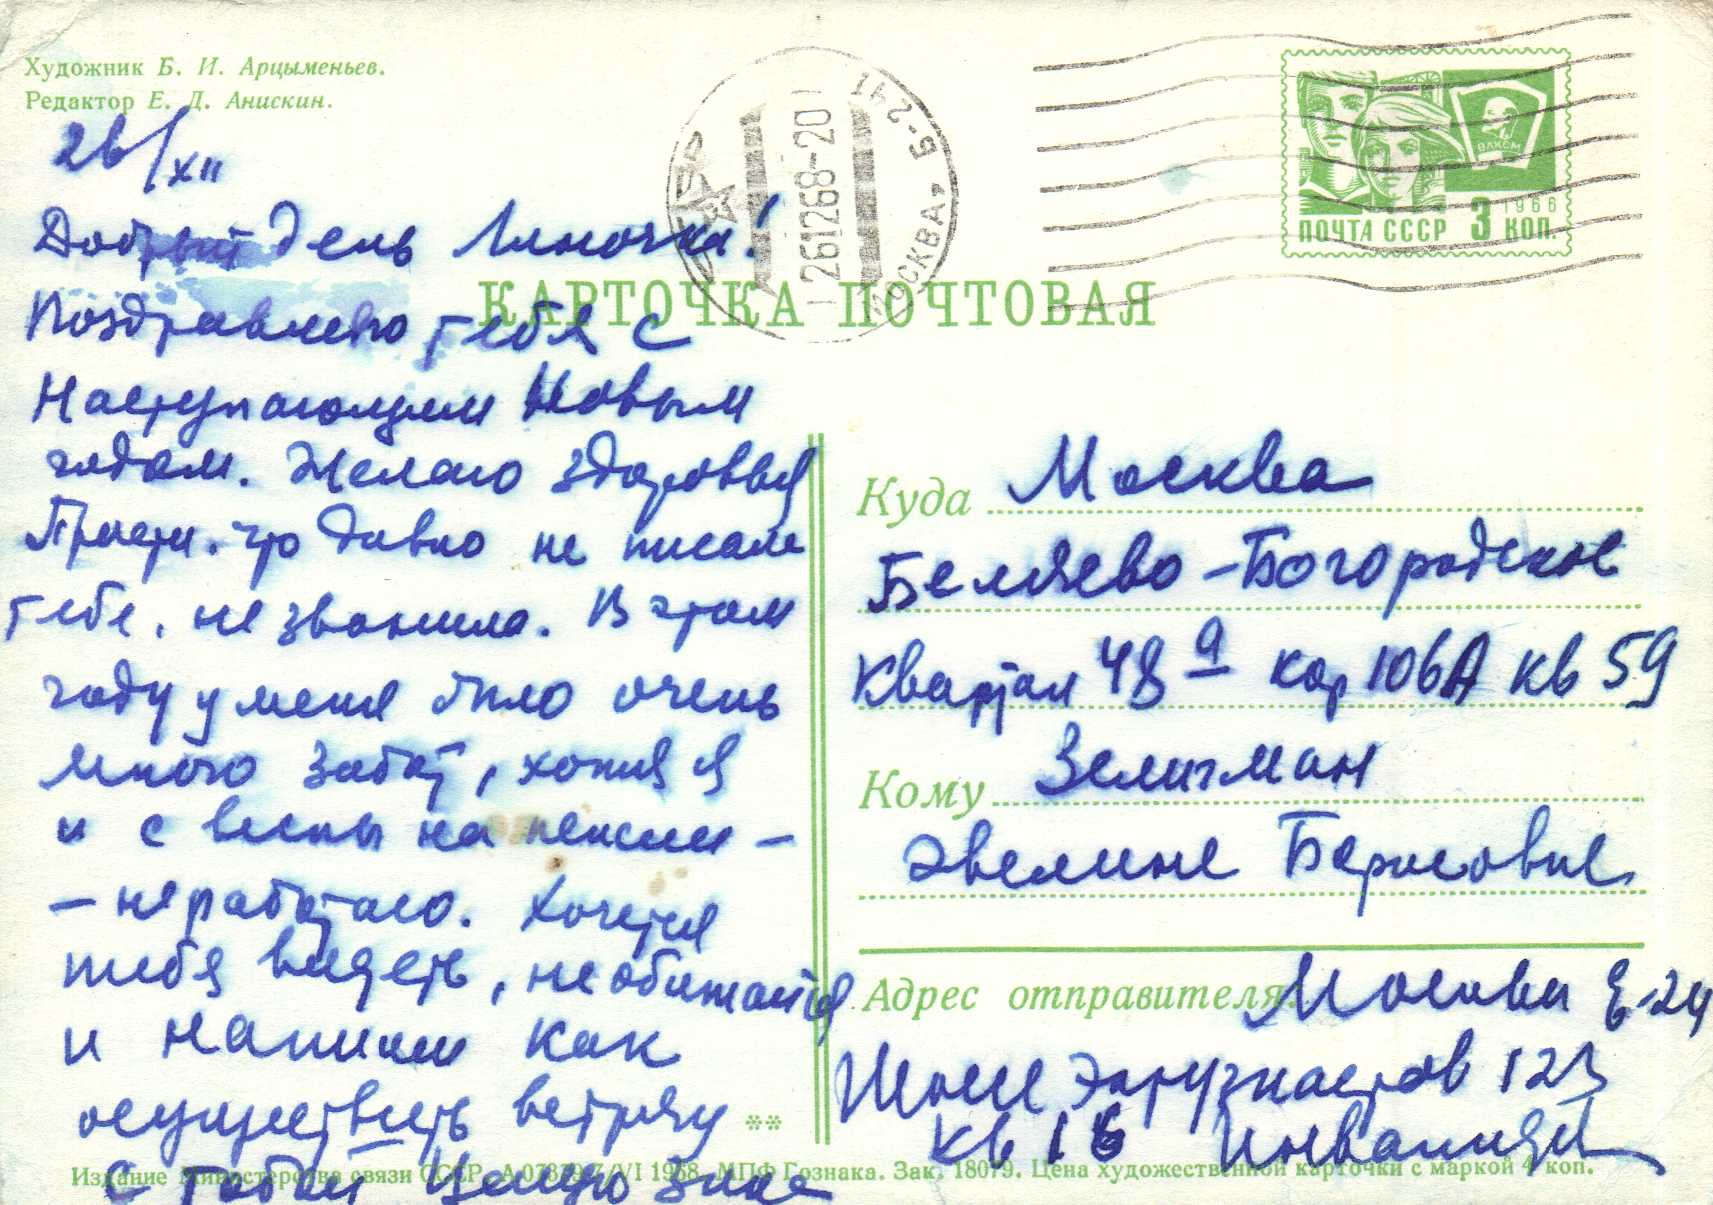 Художник Б. И. Арцыменьев.
Редактор Е. Д. Анискин.
26/XII
Добрый день Линочка!
Поздравляю тебя с
Наступающим Новым
годом. Желаю здоровья
Прости, что давно не писала
тебе, не звонила. В этом
году у меня было очень
много забот, хотя я
и с весны на пенсии –
– не работаю. Хочется
тебя видеть, не обижайся
и напиши как
осуществить встречу
с тобой Целую Зина
КАРТОЧКА ПОЧТОВАЯ
МОСКВА Б-241
261268-20
ВЛКСМ
1966
ПОЧТА СССР 3 КОП.
Куда Москва
Беляево-Богородское
Квартал 48а кор 106А кв 59
Кому Зелигман
Эвелине Борисовне
Адрес отправителя: Москва Е-24
Шоссе Энтузиастов 123
кв 16
**
Издание Министерства связи СССР. А 07839 7/VI 1968. МПФ Гознака. Зак. 18079. Цена художественной карточки с маркой 4 коп.